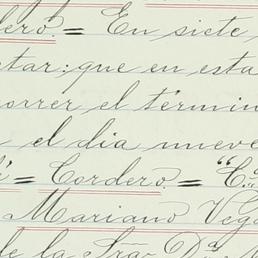 dero. = En siete
tar: que en esta
correr el términ
el dia nueve
= Cordero. = "C.
Mariano Vega
de la Sra. Da.